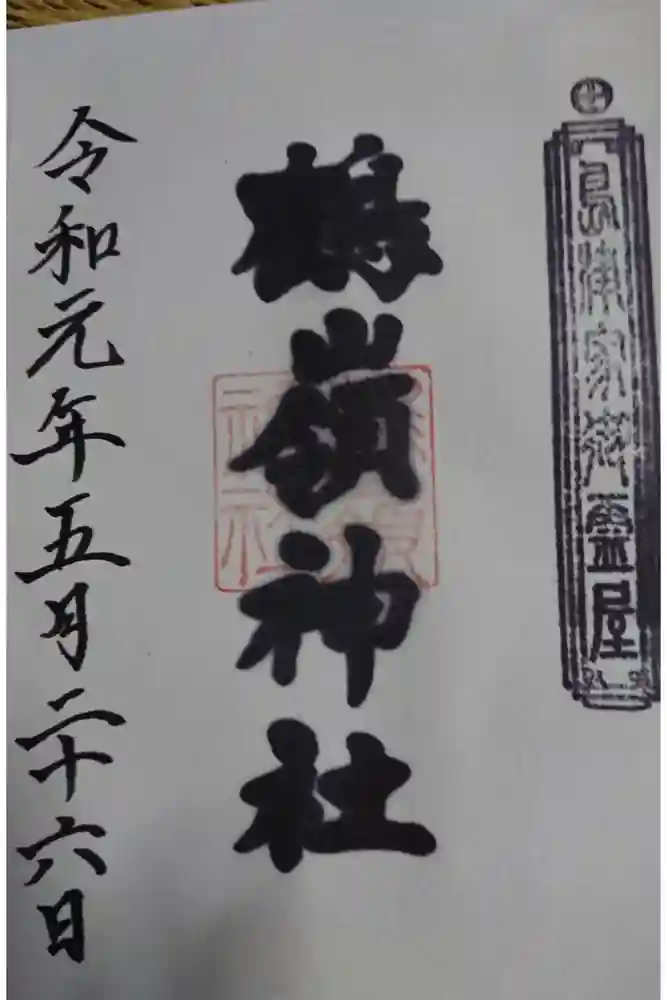 島津家御霊屋
鶴嶺神社
令和元年五月二十六日